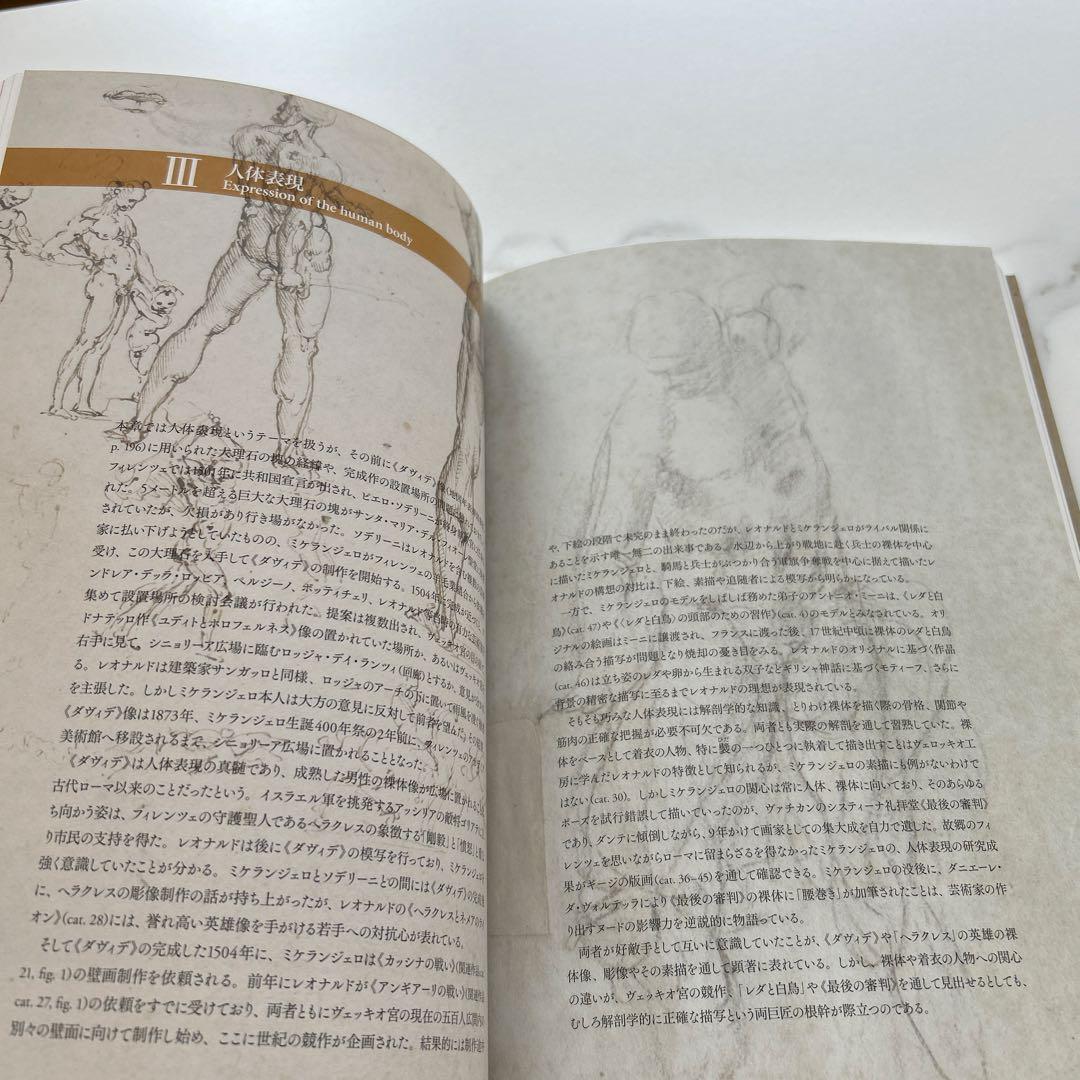 III
人体表現
Expression of the human body
本章では人体表現というテーマを扱うが、その前に《ダヴィデ》
p. 196)に用いられた大理石の塊の経緯や、完成作の設置場所の
フィレンツェでは1501年に共和国宣言が出され、ピエロ・ソデリーニが
れた。5メートルを超える巨大な大理石の塊がサンタ・マリア・デル・フィオーレ
されていたが、欠損があり行き場がなかった。ソデリーニはレオナルドを含む
家に払い下げようとしていたものの、ミケランジェロがフィレンツェの羊毛業組合から
受け、この大理石を入手して《ダヴィデ》の制作を開始する。1504年に完成が近づ
ンドレア・デッラ・ロッビア、ペルジーノ、ボッティチェリ、レオナルド
集めて設置場所の検討会議が行われた。提案は複数出され、ヴェッキオ宮の
ドナテッロ作《ユディトとホロフェルネス》像の置かれていた場所か、あるいはヴェッキオ
右手に見て、シニョーリア広場に臨むロッジャ・デイ・ランツィ(原廊)とするか、意見が
る。レオナルドは建築家サンガッロと同様、ロッジャのアーチの下に置いて雨風を
を主張した。しかしミケランジェロ本人は大方の意見に反対して前者を望んだ。その
《ダヴィデ》像は1873年、ミケランジェロ生誕400年祭の2年前に、フィレンツェのアカデミア
美術館へ移設されるまで、シニョーリア広場に置かれることとなった。
《ダヴィデ》は人体表現の真髄であり、成熟した男性の裸体像が広場に置かれる
古代ローマ以来のことだったという。イスラエル軍を挑発するアッシリアの敵将ゴリアテに
ち向かう姿は、フィレンツェの守護聖人であるヘラクレスの象徴する「剛毅」と「憤怒」
り市民の支持を得た。レオナルドは後に《ダヴィデ》の模写を行っており、ミケランジェ
強く意識していたことが分かる。ミケランジェロとソデリーニとの間には《ダヴィデ》の完成後
に、ヘラクレスの彫像制作の話が持ち上がったが、レオナルドの《ヘラクレスとネメアのライ
オン》(cat. 28)には、誉れ高い英雄像を手がける若手への対抗心が表れている。
そして《ダヴィデ》の完成した1504年に、ミケランジェロは《カッシナの戦い》(関連作品
21, fig. 1)の壁画制作を依頼される。前年にレオナルドが《アンギアーリの戦い》(関連作品
cat. 27, fig. 1)の依頼をすでに受けており、両者ともにヴェッキオ宮の現在の五百人広間内の
別々の壁面に向けて制作し始め、ここに世紀の競作が企画された。結果的には制作途中
や、下絵の段階で未完のまま終わったのだが、レオナルドとミケランジェロがライバル関係に
あることを示す唯一無二の出来事である。水辺から上がり戦地に赴く兵士の裸体を中心
に描いたミケランジェロと、騎馬と兵士がぶつかり合う軍旗争奪戦を中心に据えて描いたレ
オナルドの構想の対比は、下絵、素描や追随者による模写から明らかになっている。
一方で、ミケランジェロのモデルをしばしば務めた弟子のアントニオ・ミーニは、《レダと白
鳥》(cat. 47)や《〈レダと白鳥〉の頭部のための習作》(cat. 4)のモデルとみなされている。オリ
ジナルの絵画はミーニに譲渡され、フランスに渡った後、17世紀中頃に裸体のレダと白鳥
の絡み合う描写が問題となり焼却の憂き目をみる。レオナルドのオリジナルに基づく作品
(cat. 46)は立ち姿のレダや卵から生まれる双子などギリシャ神話に基づくモティーフ、さらに
背景の精密な描写に至るまでレオナルドの理想が表現されている。
そもそも巧みな人体表現には解剖学的な知識、とりわけ裸体を描く際の骨格、関節や
筋肉の正確な把握が必要不可欠である。両者とも実際の解剖を通して習熟していた。裸
体をベースとして着衣の人物、特に襞の一つひとつに執着して描き出すことはヴェロッキオ工
房に学んだレオナルドの特徴として知られるが、ミケランジェロの素描にも例がないわけで
はない(cat. 30)。しかしミケランジェロの関心は常に人体、裸体に向いており、そのあらゆる
ポーズを試行錯誤して描いていったのが、ヴァチカンのシスティーナ礼拝堂《最後の審判》
であり、ダンテに傾倒しながら、9年かけて画家としての集大成を自力で遺した。故郷のフィ
レンツェを思いながらローマに留まらざるを得なかったミケランジェロの、人体表現の研究成
果がギージの版画(cat. 36–45)を通して確認できる。ミケランジェロの没後に、ダニエーレ・
ダ・ヴォルテッラにより《最後の審判》の裸体に「腰巻き」が加筆されたことは、芸術家の作
り出すヌードの影響力を逆説的に物語っている。
両者が好敵手として互いに意識していたことが、《ダヴィデ》や「ヘラクレス」の英雄の裸
体像、彫像やその素描を通して顕著に表れている。しかし、裸体や着衣の人物への関心
の違いが、ヴェッキオ宮の競作、「レダと白鳥」や《最後の審判》を通して見出せるとしても、
むしろ解剖学的に正確な描写という両巨匠の根幹が際立つのである。